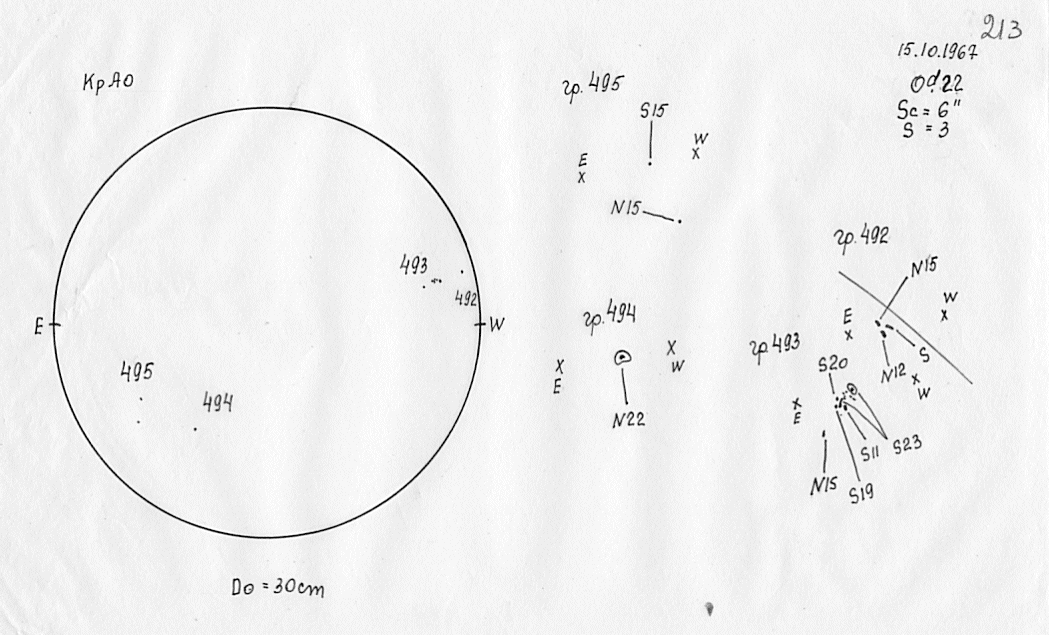 213
15.10.1967
0ᵈ.22
Sc = 6"
S = 3
КрАО
E
W
493
492
495
494
D⊙ = 30cm
гр. 495
S15
E
x
W
x
N15
гр. 494
x
E
x
W
N22
гр. 492
N15
E
x
W
x
S
N12
гр. 493
S20
x
E
x
W
S11
S23
N15
S19